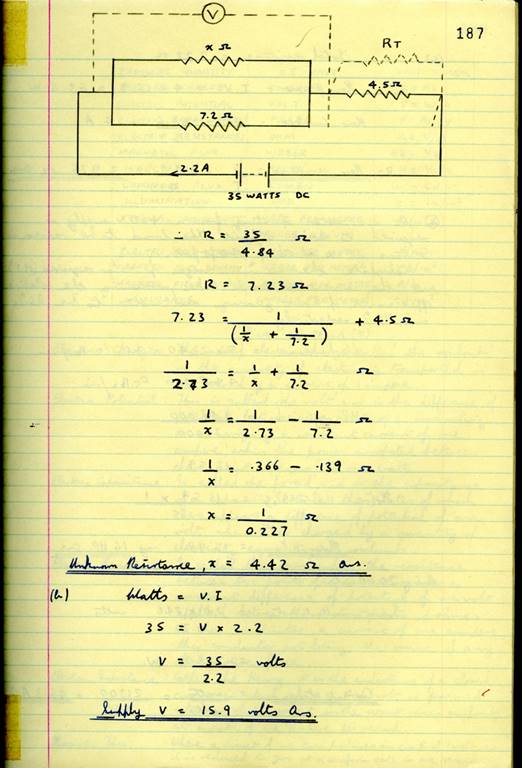 187
V
x Ω
RT
4.5Ω
7.2Ω
2.2A
35 WATTS DC
∴ R = 35/4.84 Ω
R = 7.23 Ω
7.23 = 1/(1/x + 1/7.2) + 4.5Ω
1/2.73 = 1/x + 1/7.2 Ω
1/x = 1/2.73 − 1/7.2 Ω
1/x = .366 − .139 Ω
x = 1/0.227 Ω
Unknown Resistance, x = 4.42 Ω Ans.
(b) Watts = V.I
35 = V × 2.2
V = 35/2.2 volts
Supply V = 15.9 volts Ans.